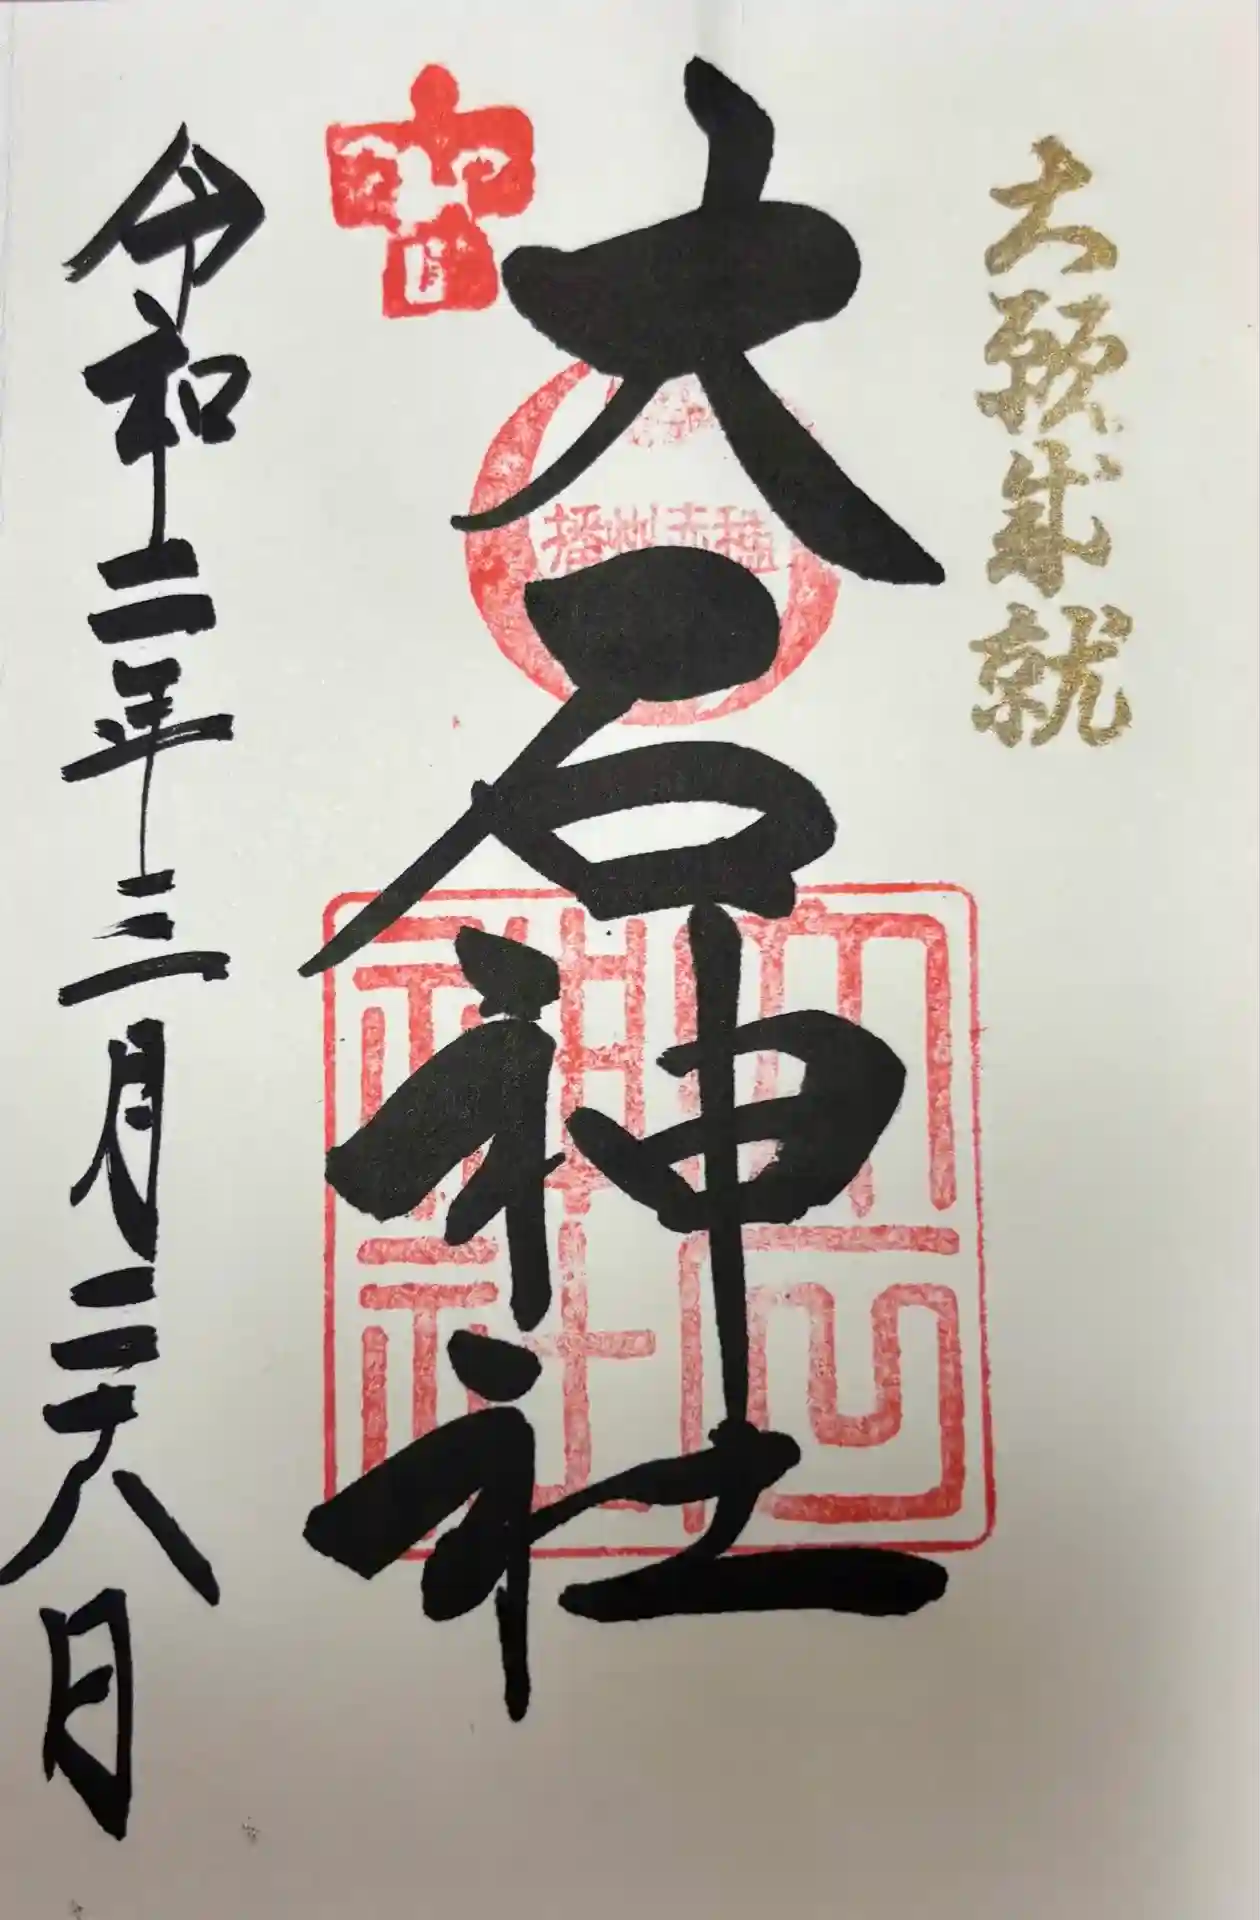 大願成就
大石神社
播州赤穂
大石
神社
令和二年三月二十八日